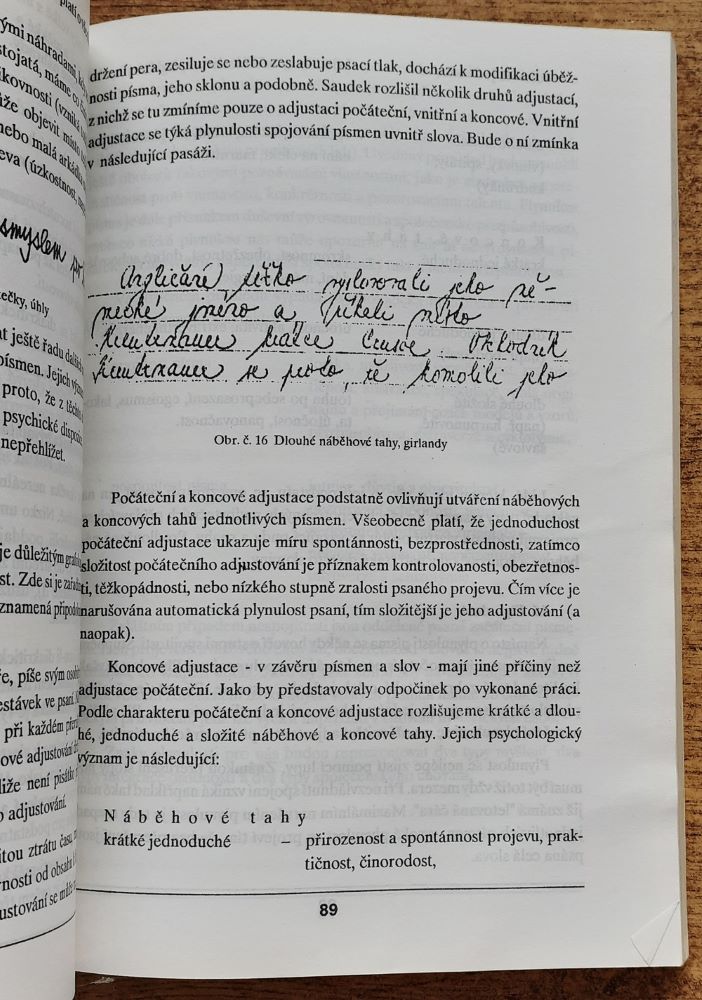 držení pera, zesiluje se nebo zeslabuje psací tlak, dochází k modifikaci úběž-
nosti písma, jeho sklonu a podobně. Saudek rozlišil několik druhů adjustací,
z nichž se tu zmíníme pouze o adjustaci počáteční, vnitřní a koncové. Vnitřní
adjustace se týká plynulosti spojování písmen uvnitř slova. Bude o ní zmínka
v následující pasáži.
Angličané těžko vyslovovali jeho ně-
mecké jméno a říkali místo
Lieutenance
Lieutenance se proto, že komolili jeho
Obr. č. 16 Dlouhé náběhové tahy, girlandy
Počáteční a koncové adjustace podstatně ovlivňují utváření náběhových
a koncových tahů jednotlivých písmen. Všeobecně platí, že jednoduchost
počáteční adjustace ukazuje míru spontánnosti, bezprostřednosti, zatímco
složitost počátečního adjustování je příznakem kontrolovanosti, obezřetnos-
ti, těžkopádnosti, nebo nízkého stupně zralosti psaného projevu. Čím více je
narušována automatická plynulost psaní, tím složitější je jeho adjustování (a
naopak).
Koncové adjustace - v závěru písmen a slov - mají jiné příčiny než
adjustace počáteční. Jako by představovaly odpočinek po vykonané práci.
Podle charakteru počáteční a koncové adjustace rozlišujeme krátké a dlou-
hé, jednoduché a složité náběhové a koncové tahy. Jejich psychologický
význam je následující:
Náběhové tahy
krátké jednoduché – přirozenost a spontánnost projevu, prak-
tičnost, činorodost,
89